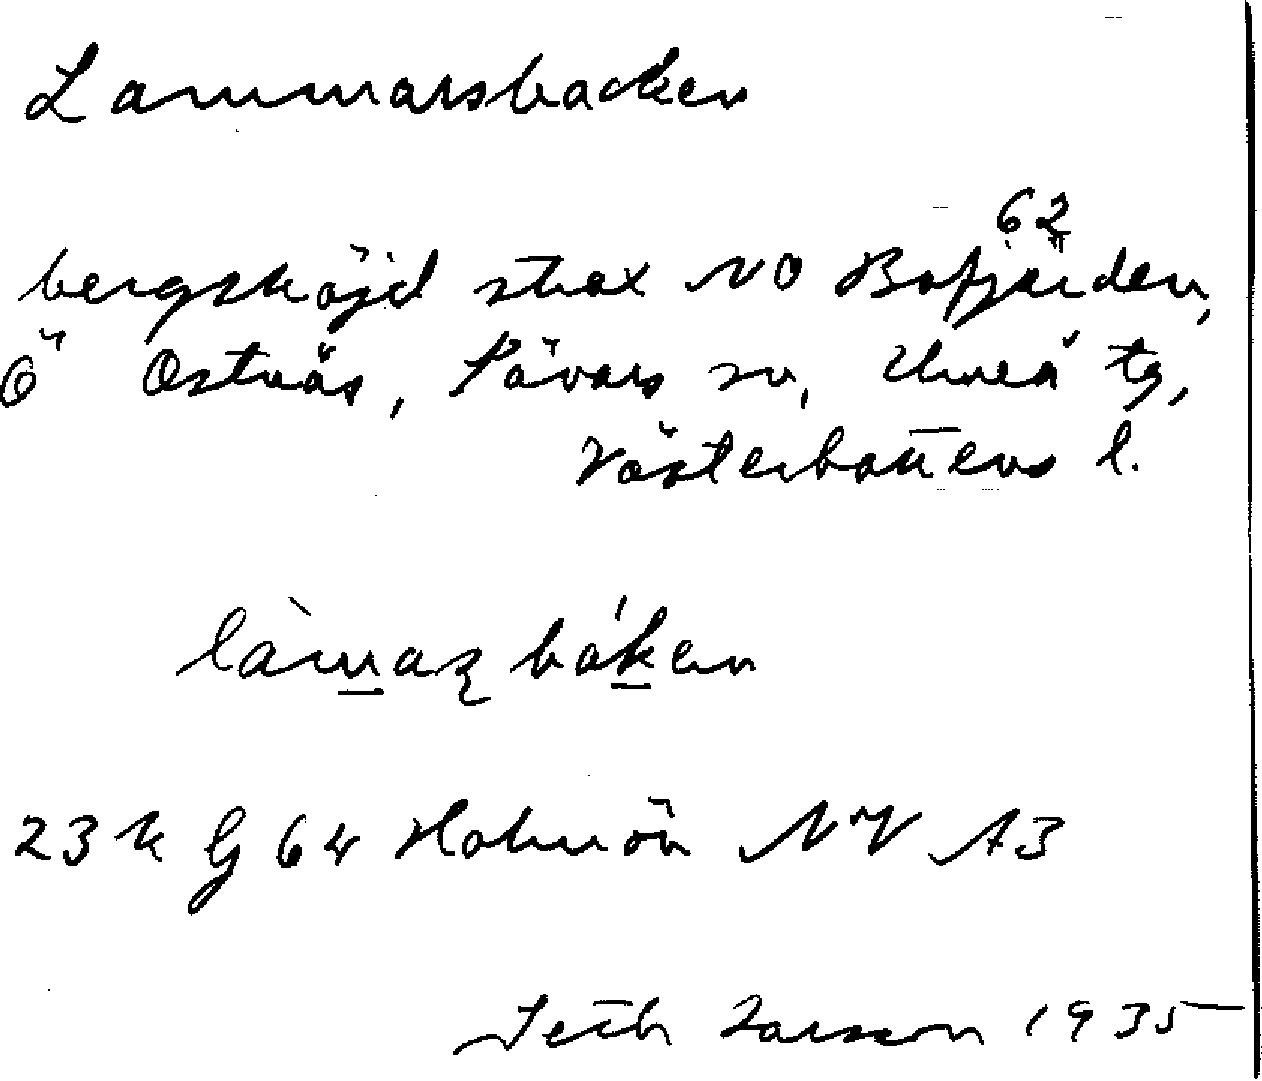 Lammarsbacken
62
bergshöjd strax NO Bofjärden,
Ö Ostnäs, Sävars sn, Umeå tg,
Västerbottens l.
làmaʂ báken
23 k G 64 Holmön NV A3
Seth Larsson 1935